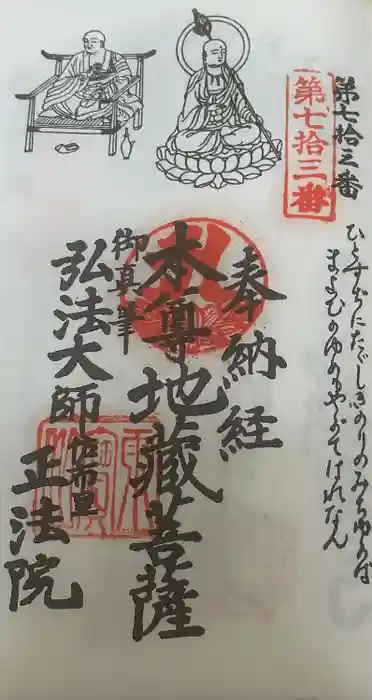 第七拾三番
第七拾三番
ひとすぢにただしきのりのみちゆかば
まよひのゆめもやがてはれなん
奉納経
本尊地藏菩薩
御真筆
弘法大師
佐布里
正法院